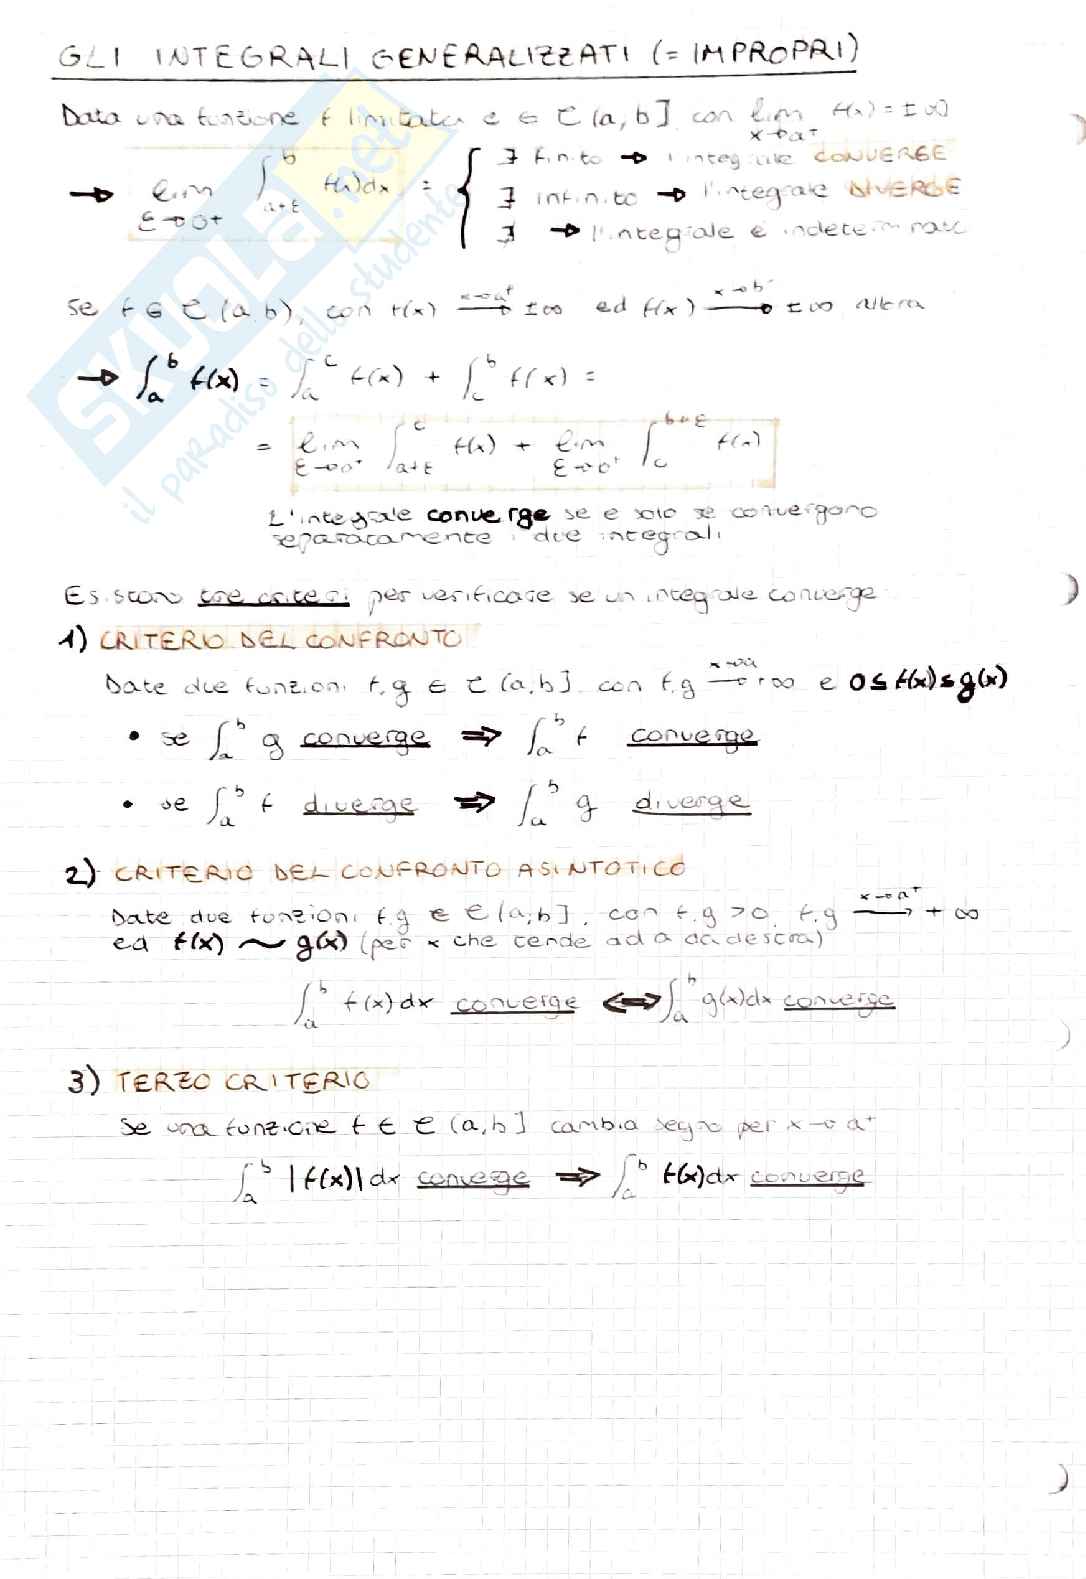 GLI INTEGRALI GENERALIZZATI (= IMPROPRI)
Data una funzione f limitata e ∈ C (a, b] con lim x→a⁺ f(x) = ±∞
→ lim ε→0⁺ ∫_{a+ε}^{b} f(x)dx = { ∃ finito → l'integrale CONVERGE
∃ infinito → l'integrale DIVERGE
∄ → l'integrale è indeterminato
Se f ∈ C (a, b), con f(x) →^{x→a⁺} ±∞ ed f(x) →^{x→b⁻} ±∞, allora
→ ∫_a^b f(x) = ∫_a^c f(x) + ∫_c^b f(x) =
= lim ε→0⁺ ∫_{a+ε}^{c} f(x) + lim ε→0⁺ ∫_c^{b+ε} f(x)
L'integrale converge se e solo se convergono
separatamente i due integrali
Esistono tre criteri per verificare se un integrale converge:
1) CRITERIO DEL CONFRONTO
Date due funzioni f, g ∈ C (a, b] con f, g →^{x→a} +∞ e 0 ≤ f(x) ≤ g(x)
• se ∫_a^b g converge ⇒ ∫_a^b f converge
• se ∫_a^b f diverge ⇒ ∫_a^b g diverge
2) CRITERIO DEL CONFRONTO ASINTOTICO
Date due funzioni f, g ∈ C (a, b], con f, g > 0, f, g →^{x→a⁺} +∞
ed f(x) ~ g(x) (per x che tende ad a da destra)
∫_a^b f(x)dx converge ⟺ ∫_a^b g(x)dx converge
3) TERZO CRITERIO
Se una funzione f ∈ C (a, b] cambia segno per x→a⁺
∫_a^b |f(x)|dx converge ⇒ ∫_a^b f(x)dx converge
SKUOLA.net
il paradiso dello studente